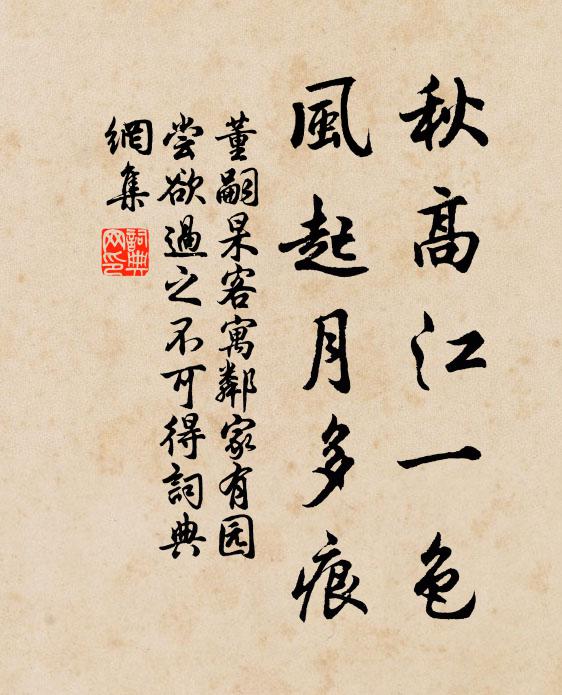 秋高江一色
風起月多痕
董嗣杲客寓鄰家有园
尝欲過之不可得詞典
網集
詞典网印